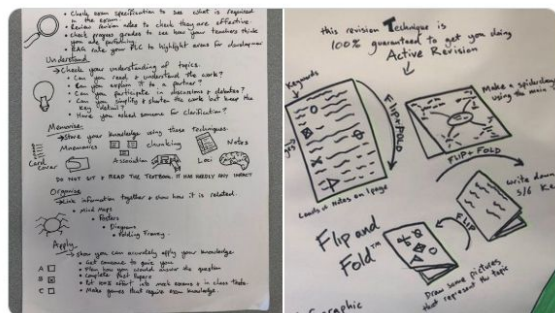 • Check exam specification to see what is required
in the exam.
• Review revision notes to check they are effective
• Check progress grades to see how your teachers think
you are performing.
• RAG rate your PLC to highlight areas for development
Understand
→ Check your understanding of topics.
• Can you read & understand the work?
• Can you explain it to a partner?
• Can you participate in discussions & debates?
• Can you simplify & shorten the work but keep the
key detail?
• Have you asked someone for clarification?
Memorise
→ Store your knowledge using these techniques
Mnemonics
chunking
Notes
Card
Association
Loci
DO NOT SIT & READ THE TEXTBOOK, IT HAS HARDLY ANY IMPACT
Organise
→ Link information together & show how it is related.
• Mind Maps
• Posters
• Diagrams
• Folding Frenzy.
Apply
→ Show you can accurately apply your knowledge
• Get someone to quiz you
• Plan how you would answer the question
• Complete Past Papers
• Put effort into mock exams & in class tests.
• Make games that require exam knowledge.
A
B
C
this revision Technique is
100% guaranteed to get you doing
Active Revision
Keywords
FLIP+FOLD
Make a spiderdiag
using the main
Loads of Notes on 1 page
FLIP + FOLD
write down
5/6
FLIP
Flip and
Fold™
Draw some pictures
that represent the topic